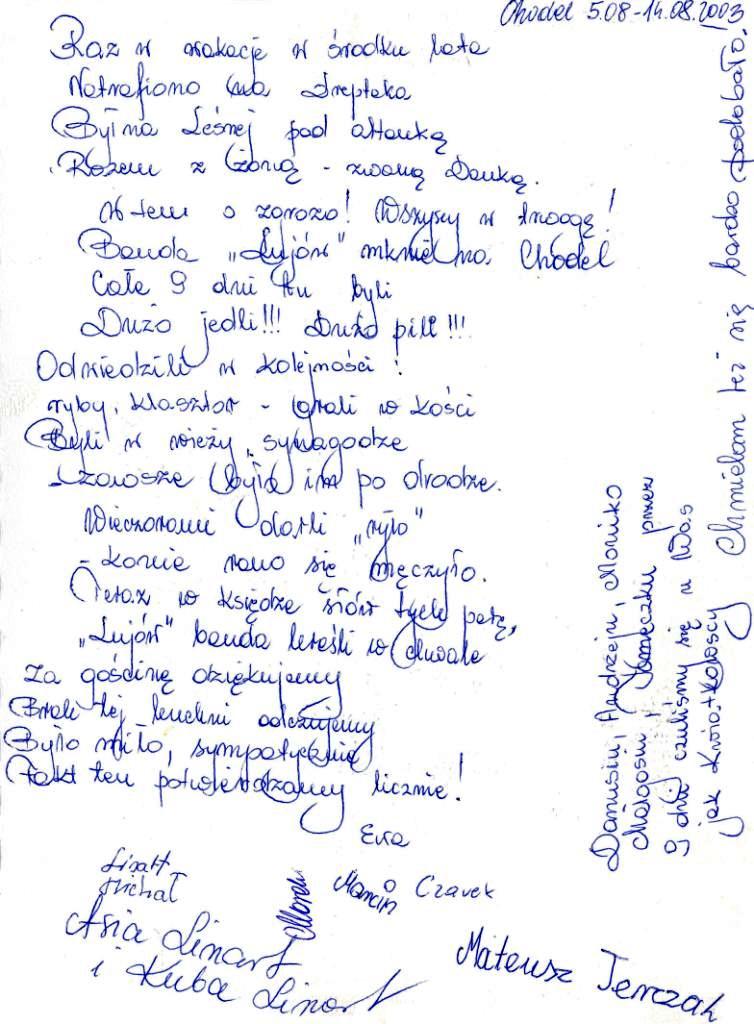 Chodel 5.08-14.08.2003
Raz w wakacje w środku lata
Natrafiono na drepteka
Był na Leśnej pod altanką
Razem z żoną - zwaną Danką.
W tem o zgrozo! Wszyscy w trwogę!
Banda „Lujów" mknie na Chodel
Całe 9 dni tu byli
Dużo jedli!!! Dużo pili!!!
Odwiedzili w kolejności:
ryby, klasztor - grali w kości
Byli w wieży, synagodze
zawsze było im po drodze.
Wieczorami darli „ryło"
- konie rano się męczyło.
Teraz w księdze słów tych parę,
„Lujów" banda kreśli w chwale
Za gościnę dziękujemy
Brak tej kuchni odczujemy
Było miło, sympatycznie
Fakt ten potwierdzamy licznie!
Ewa
Linart
Michał
Marcin Czarek
Asia Linart
i Kuba Linart
Mateusz Jerczak
Danusiu, Andrzeju, Moniko
Małgosiu i Tomeczku przez
9 dni czuliśmy się u Was
jak Kwiatkowscy
Chmielom też się bardzo podobało.